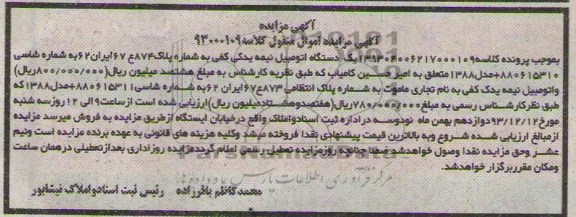 آگهی مزایده
آگهی مزایده اموال منقول کلاسه ۹۳۰۰۰۱۰۹
بموجب پرونده کلاسه ۱۳۹۳۰۴۰۰۶۲۱۷۰۰۰۱۰۹ یک دستگاه اتومبیل نیمه یدکی کفی به شماره پلاک ۸۷۴ع۶۷ ایران ۶۲ به شماره شاسی
۸۸۰۶۱۵۳۱۰+مدل ۱۳۸۸ متعلق به امیر حسین کامیاب که طبق نظریه کارشناس به مبلغ هشتصد میلیون ریال (۸۰۰/۰۰۰/۰۰۰ریال)
واتومبیل نیمه یدک کفی به نام تجاری ماموت به شماره پلاک انتظامی ۸۷۳ع۶۷ ایران ۶۲ به شماره شاسی ۸۸۰۶۱۵۳۱۱+مدل ۱۳۸۸ که
طبق نظر کارشناس رسمی به مبلغ ۷۸۰/۰۰۰/۰۰۰ ریال (هفتصدوهشتادمیلیون ریال) ارزیابی شده است از ساعت ۹ الی ۱۲ روز سه شنبه
مورخ ۹۳/۱۲/۱۲ دوازدهم بهمن ماه نودوسه در اداره ثبت اسنادواملاک واقع در خیابان ایستگاه از طریق مزایده به فروش میرسد مزایده
از مبالغ ارزیابی شده شروع وبه بالاترین قیمت پیشنهادی نقدا فروخته میشد وکلیه هزینه های قانونی به عهده برنده مزایده است ونیم
عشر وحق مزایده نقدا وصول خواهدشد ضمنا چنانچه روز مزایده تعطیل رسمی اعلام گردد مزایده روزاداری بعدازتعطیلی در همان ساعت
ومکان مقرر برگزار خواهدشد.
محمد کاظم باقرزاده رئیس ثبت اسنادواملاک نیشابور